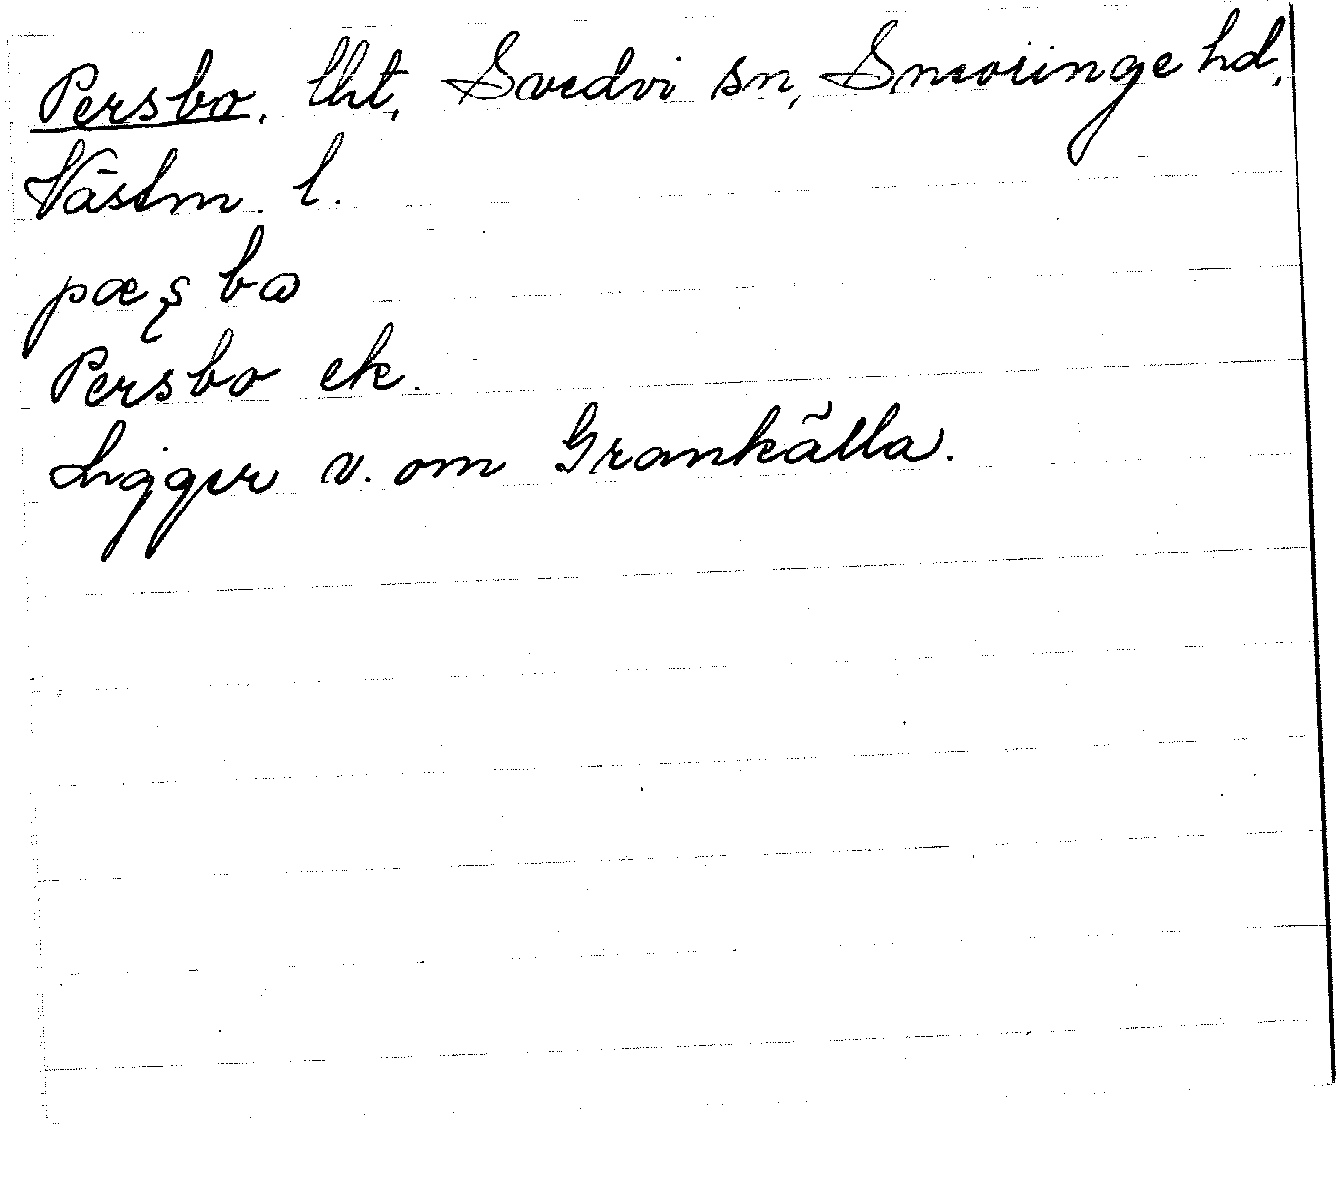 Persbo, lht, Svedvi sn, Snevringe hd,
Västm. l.
pæʂbɷ
Persbo ek.
Ligger v. om Grankälla.